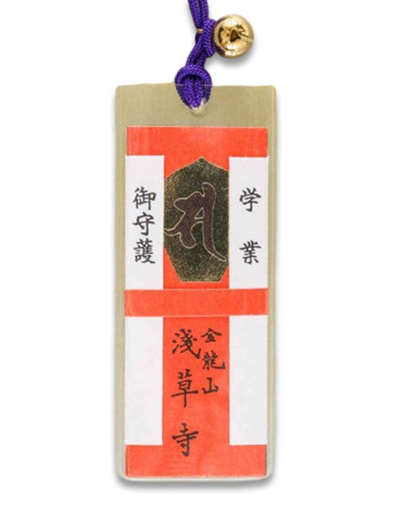 学業
𑖭
御守護
金龍山
淺草寺